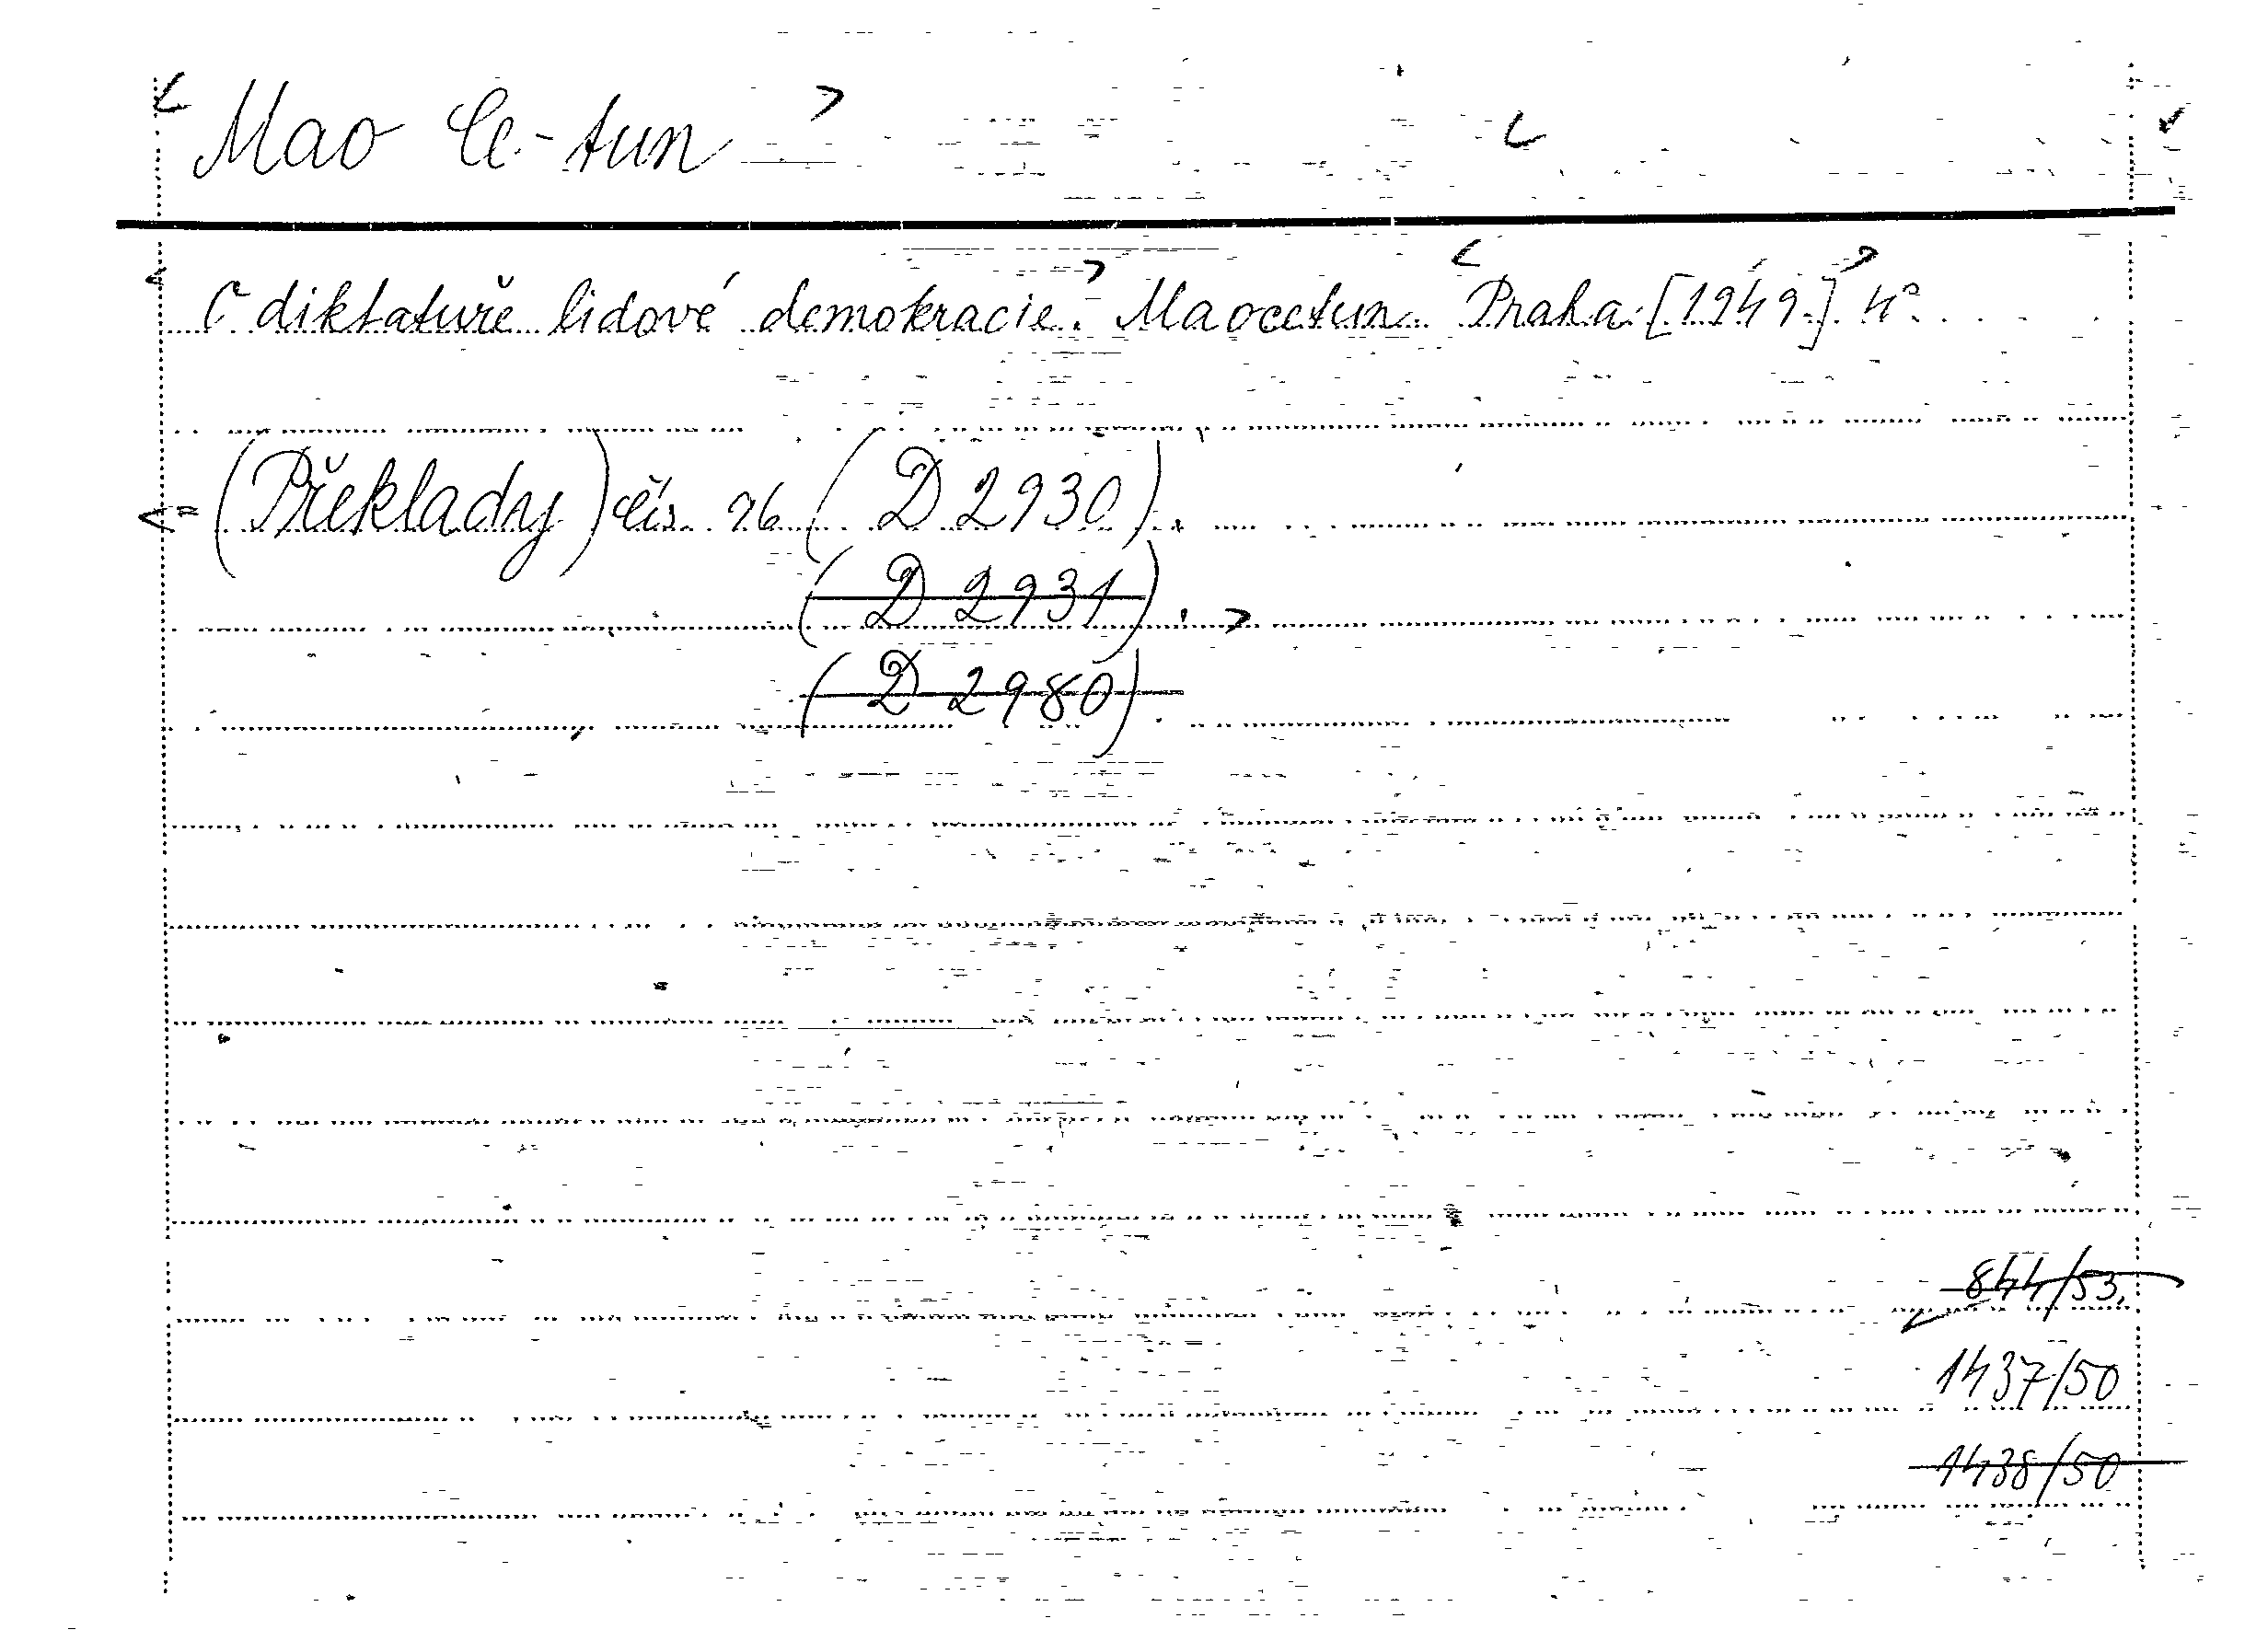 Mao Ce-tun
O diktatuře lidové demokracie. Maocetun. Praha [1949] 4°.
= (Překlady) čís. 26 (D 2930).
(D 2931).
(D 2980).
844/53
1437/50
1438/50